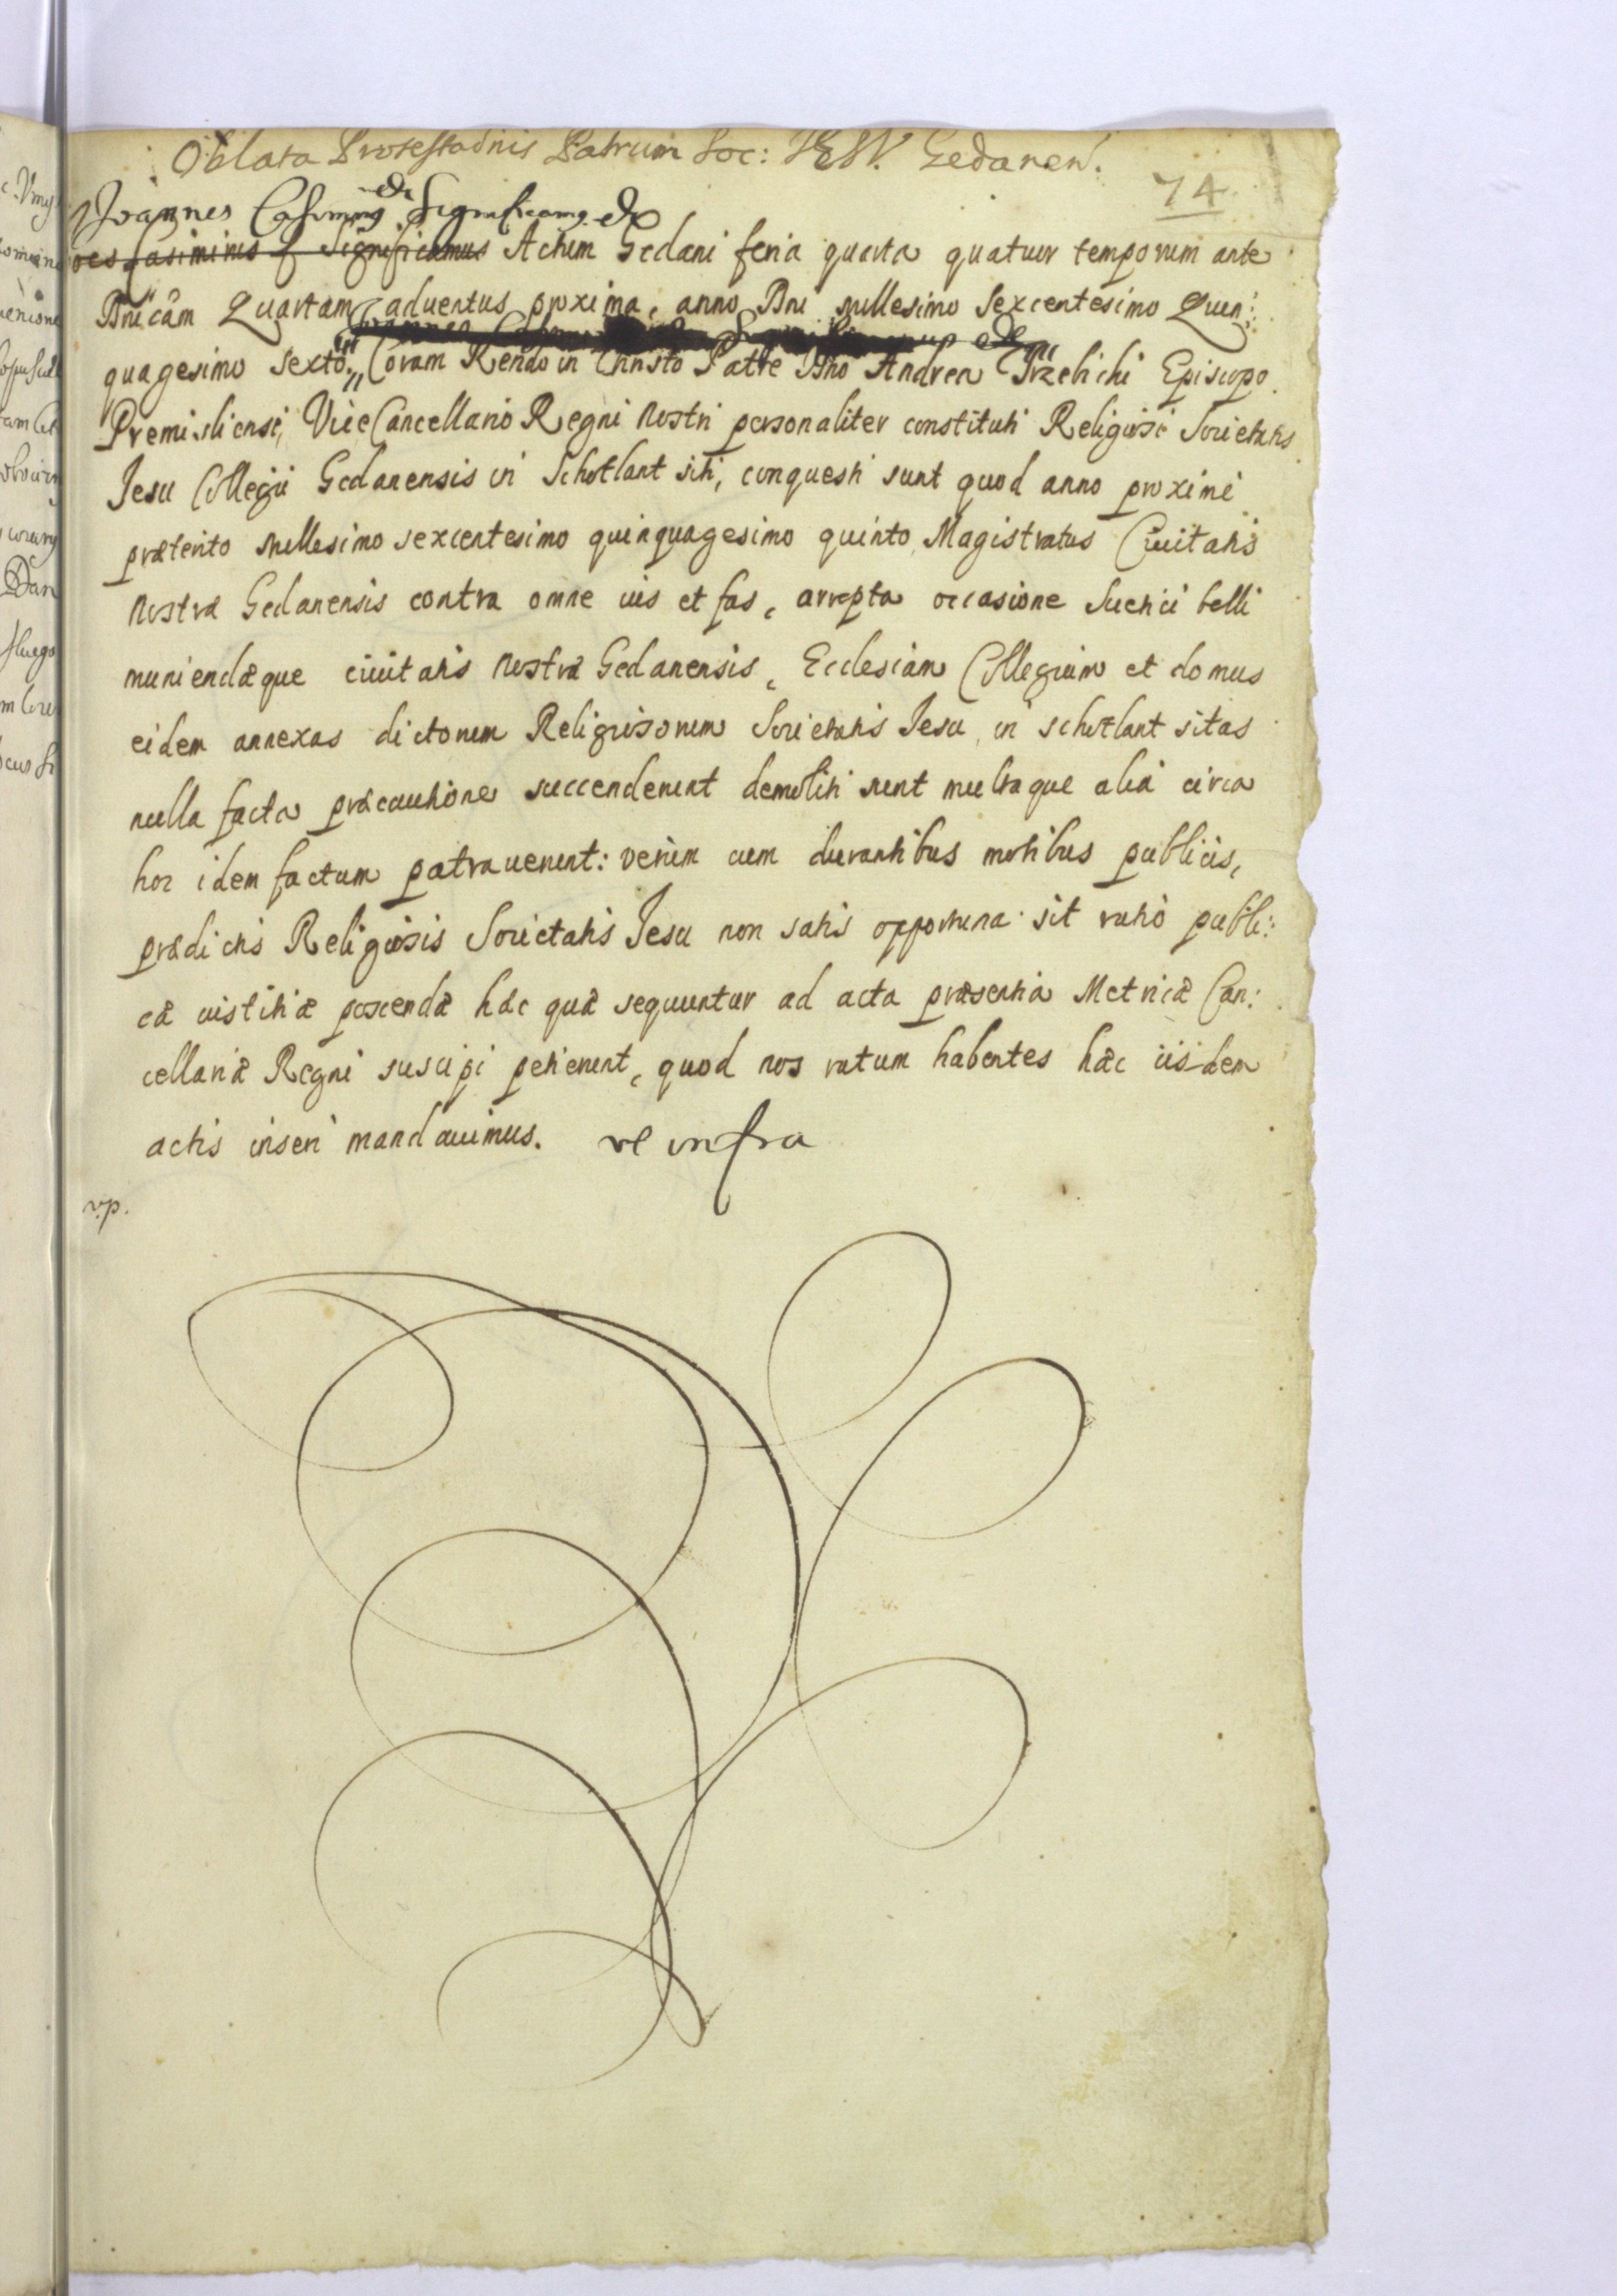 Oblata Protestaonis Patrum Soc: IESV. Gedanen.
74
Joannes Casimirus etc Significamus etc
Joes Casimirus etc Significamus Actum Gedani feria quarta quatuor temporum ante
Dnicam Quartam aduentus proxima, anno Dni millesimo sexcentesimo Quin:
quagesimo sexto, Coram Rendo in Christo Patre Dno Andrea Trzebichi Episcopo
Premisliensi, ViceCancellario Regni nostri personaliter constituti Religiosi Societatis
Jesu Collegii Gedanensis in Schotlant siti, conquesti sunt quod anno proxime
præterito millesimo sexcentesimo quinquagesimo quinto, Magistratus Ciuitatis
nostræ Gedanensis contra omne ius et fas, arrepta occasione Suetici belli
muniendæque ciuitatis nostræ Gedanensis, Ecclesiam Collegium et domus
eidem annexas dictorum Religiosorum Societatis Jesu, in Schotlant sitas
nulla facta præcautione succenderunt demoliti sunt multaque alia circa
hoc idem factum patrauerunt: verum cum durantibus motibus publicis,
prædictis Religiosis Societatis Jesu non satis opportuna sit ratio publi:
cæ iustitiæ poscendæ hæc quæ sequuntur ad acta præsentia Metricæ Can:
cellariæ Regni suscipi petierunt, quod nos ratum habentes hæc iisdem
actis inseri mandauimus. ut infra
v.p.